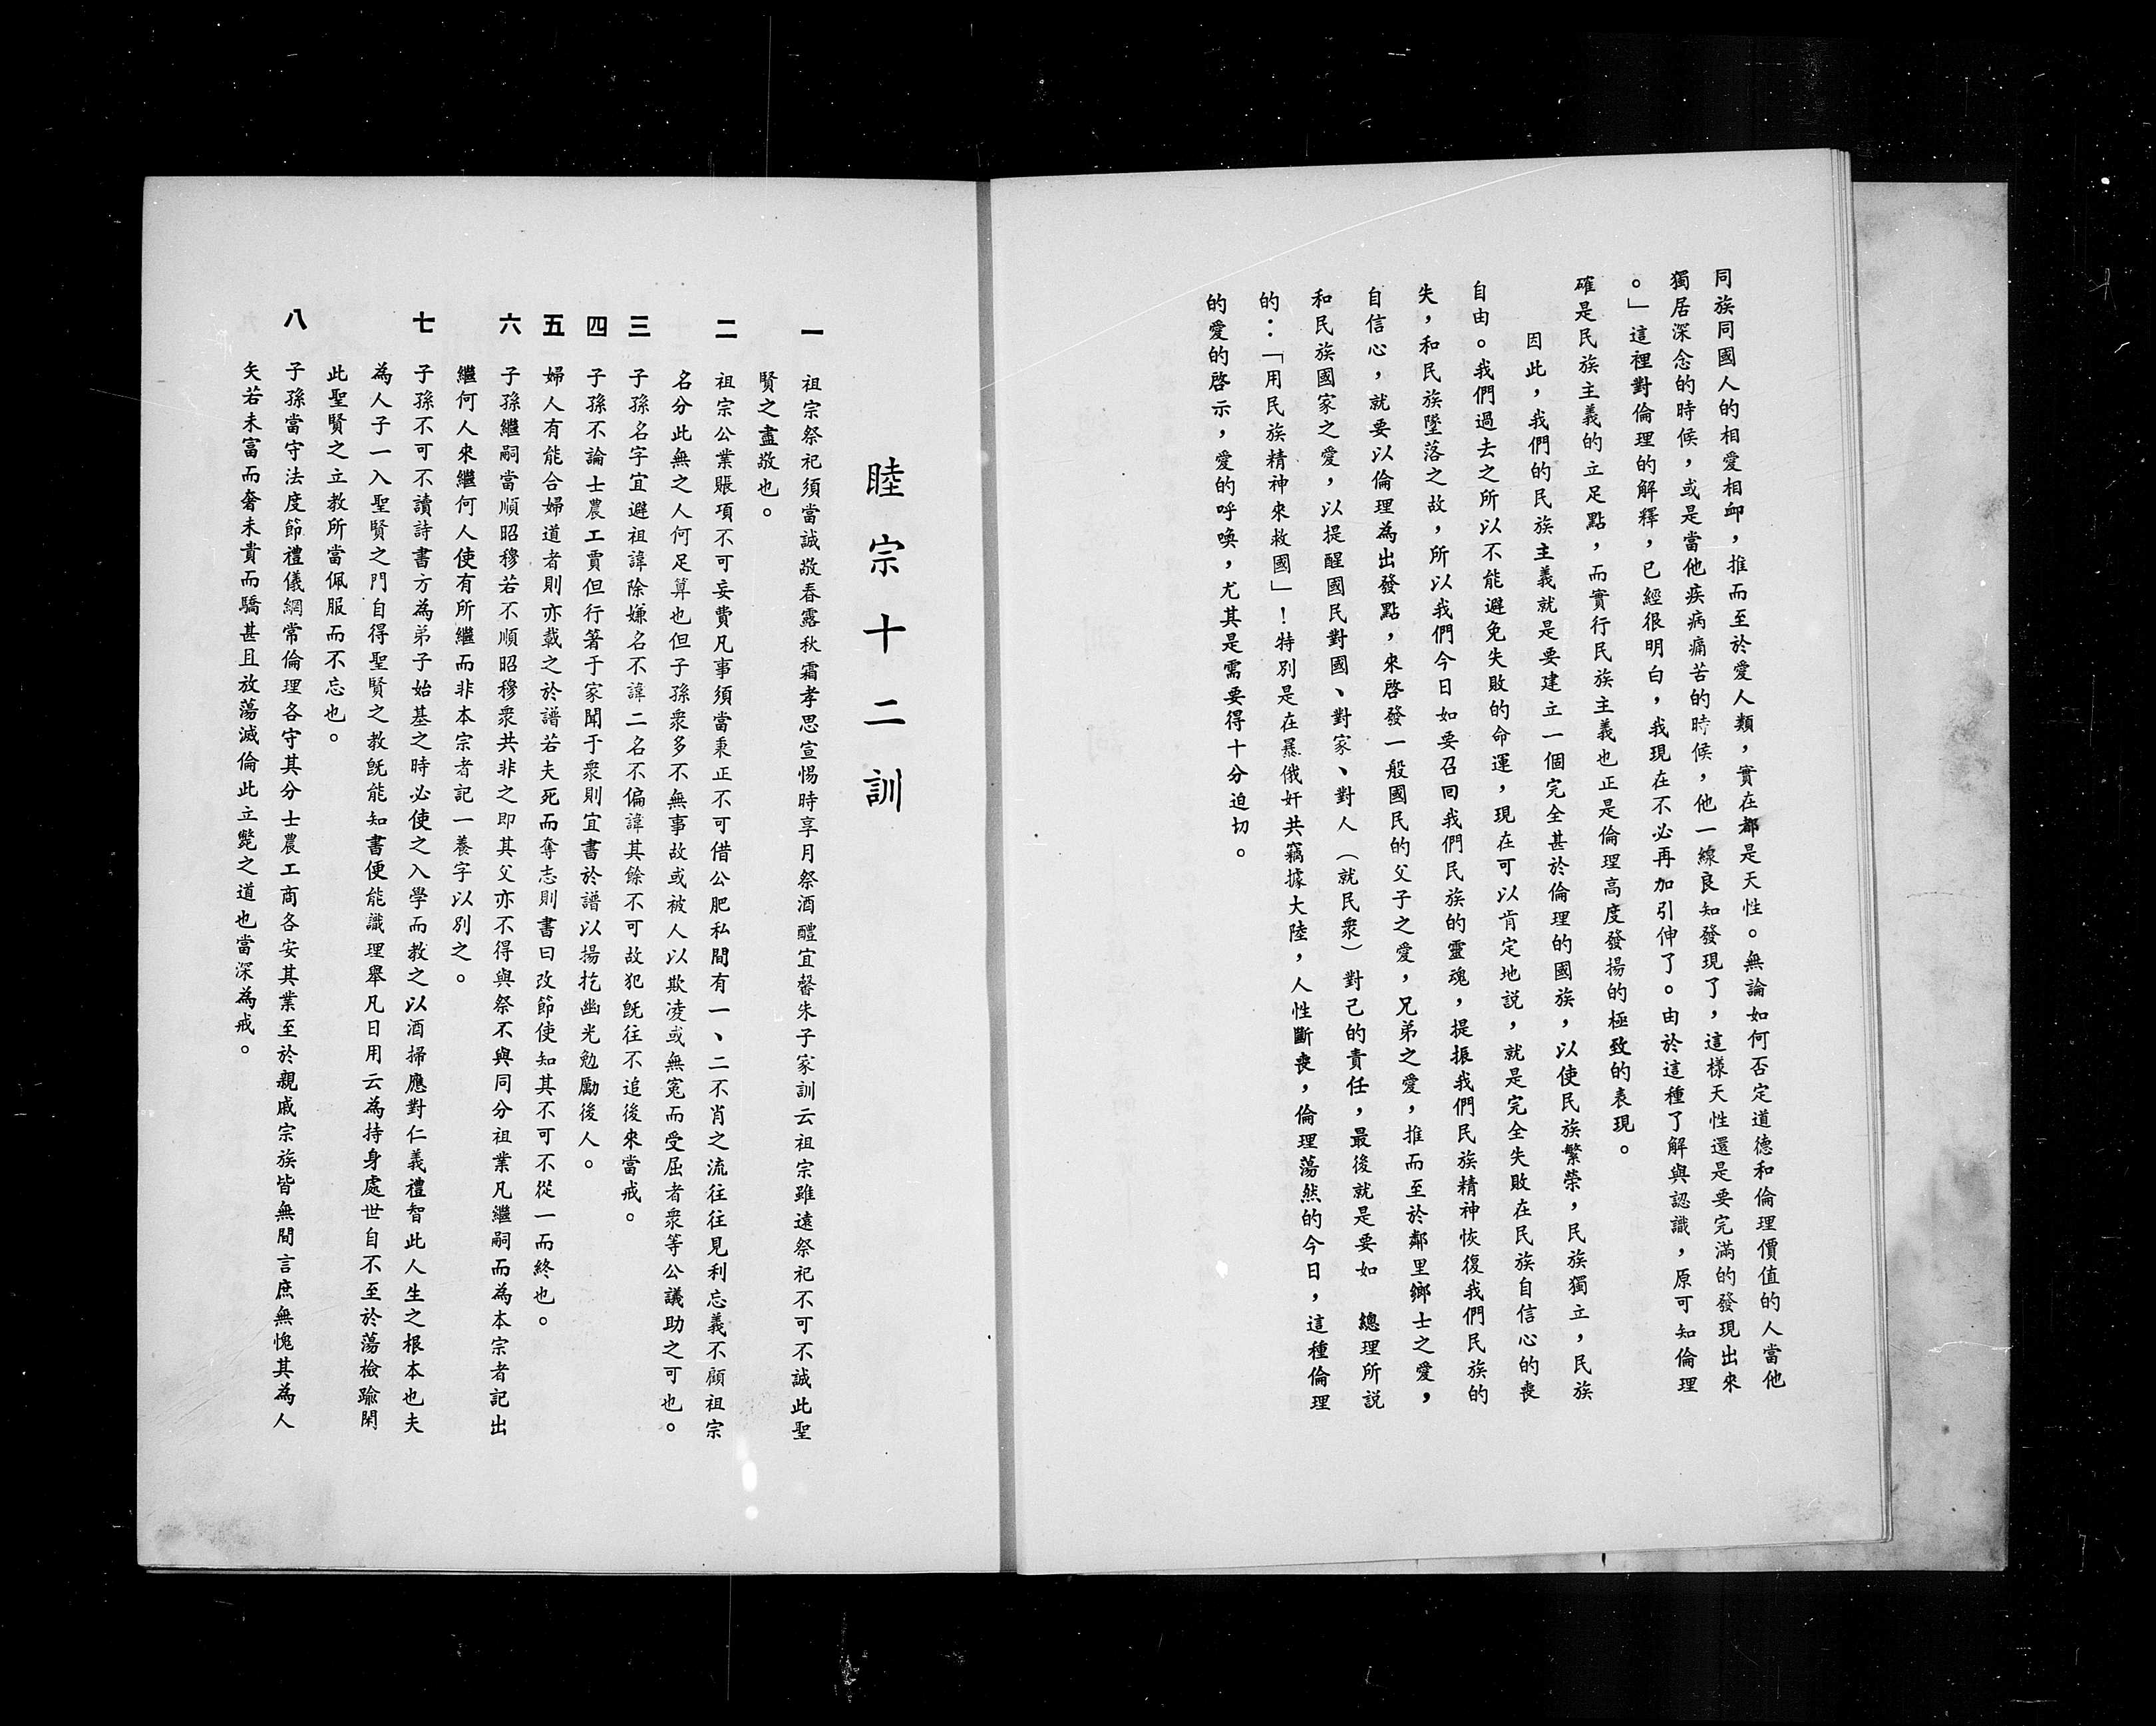 同族同國人的相愛相卹，推而至於愛人類，實在都是天性。無論如何否定道德和倫理價值的人當他
獨居深念的時候，或是當他疾病痛苦的時候，他一線良知發現了，這樣天性還是要完滿的發現出來
。」這裡對倫理的解釋，已經很明白，我現在不必再加引伸了。由於這種了解與認識，原可知倫理
確是民族主義的立足點，而實行民族主義也正是倫理高度發揚的極致的表現。
因此，我們的民族主義就是要建立一個完全甚於倫理的國族，以使民族繁榮，民族獨立，民族
自由。我們過去之所以不能避免失敗的命運，現在可以肯定地說，就是完全失敗在民族自信心的喪
失，和民族墜落之故，所以我們今日如要召回我們民族的靈魂，提振我們民族精神恢復我們民族的
自信心，就要以倫理為出發點，來啓發一般國民的父子之愛，兄弟之愛，推而至於鄰里鄉士之愛，
和民族國家之愛，以提醒國民對國、對家、對人（就民衆）對己的責任，最後就是要如　總理所說
的：「用民族精神來救國」！特別是在暴俄奸共竊據大陸，人性斷喪，倫理蕩然的今日，這種倫理
的愛的啓示，愛的呼喚，尤其是需要得十分迫切。
睦宗十二訓
一　祖宗祭祀須當誠敬春露秋霜孝思宣惕時享月祭酒醴宜馨朱子家訓云祖宗雖遠祭祀不可不誠此聖
賢之盡敬也。
二　祖宗公業賬項不可妄費凡事須當秉正不可借公肥私間有一、二不肖之流往往見利忘義不顧祖宗
名分此無之人何足算也但子孫衆多不無事故或被人以欺凌或無寃而受屈者衆等公議助之可也。
三　子孫名字宜避祖諱除嫌名不諱二名不偏諱其餘不可故犯旣往不追後來當戒。
四　子孫不論士農工賈但行箸于家聞于衆則宜書於譜以揚扢幽光勉勵後人。
五　婦人有能合婦道者則亦載之於譜若夫死而奪志則書曰改節使知其不可不從一而終也。
六　子孫繼嗣當順昭穆若不順昭穆衆共非之即其父亦不得與祭不與同分祖業凡繼嗣而為本宗者記出
繼何人來繼何人使有所繼而非本宗者記一養字以別之。
七　子孫不可不讀詩書方為弟子始基之時必使之入學而教之以酒掃應對仁義禮智此人生之根本也夫
為人子一入聖賢之門自得聖賢之教旣能知書便能識理舉凡日用云為持身處世自不至於蕩檢踰閑
此聖賢之立教所當佩服而不忘也。
八　子孫當守法度節禮儀綱常倫理各守其分士農工商各安其業至於親戚宗族皆無間言庶無愧其為人
矣若未富而奢未貴而驕甚且放蕩滅倫此立斃之道也當深為戒。